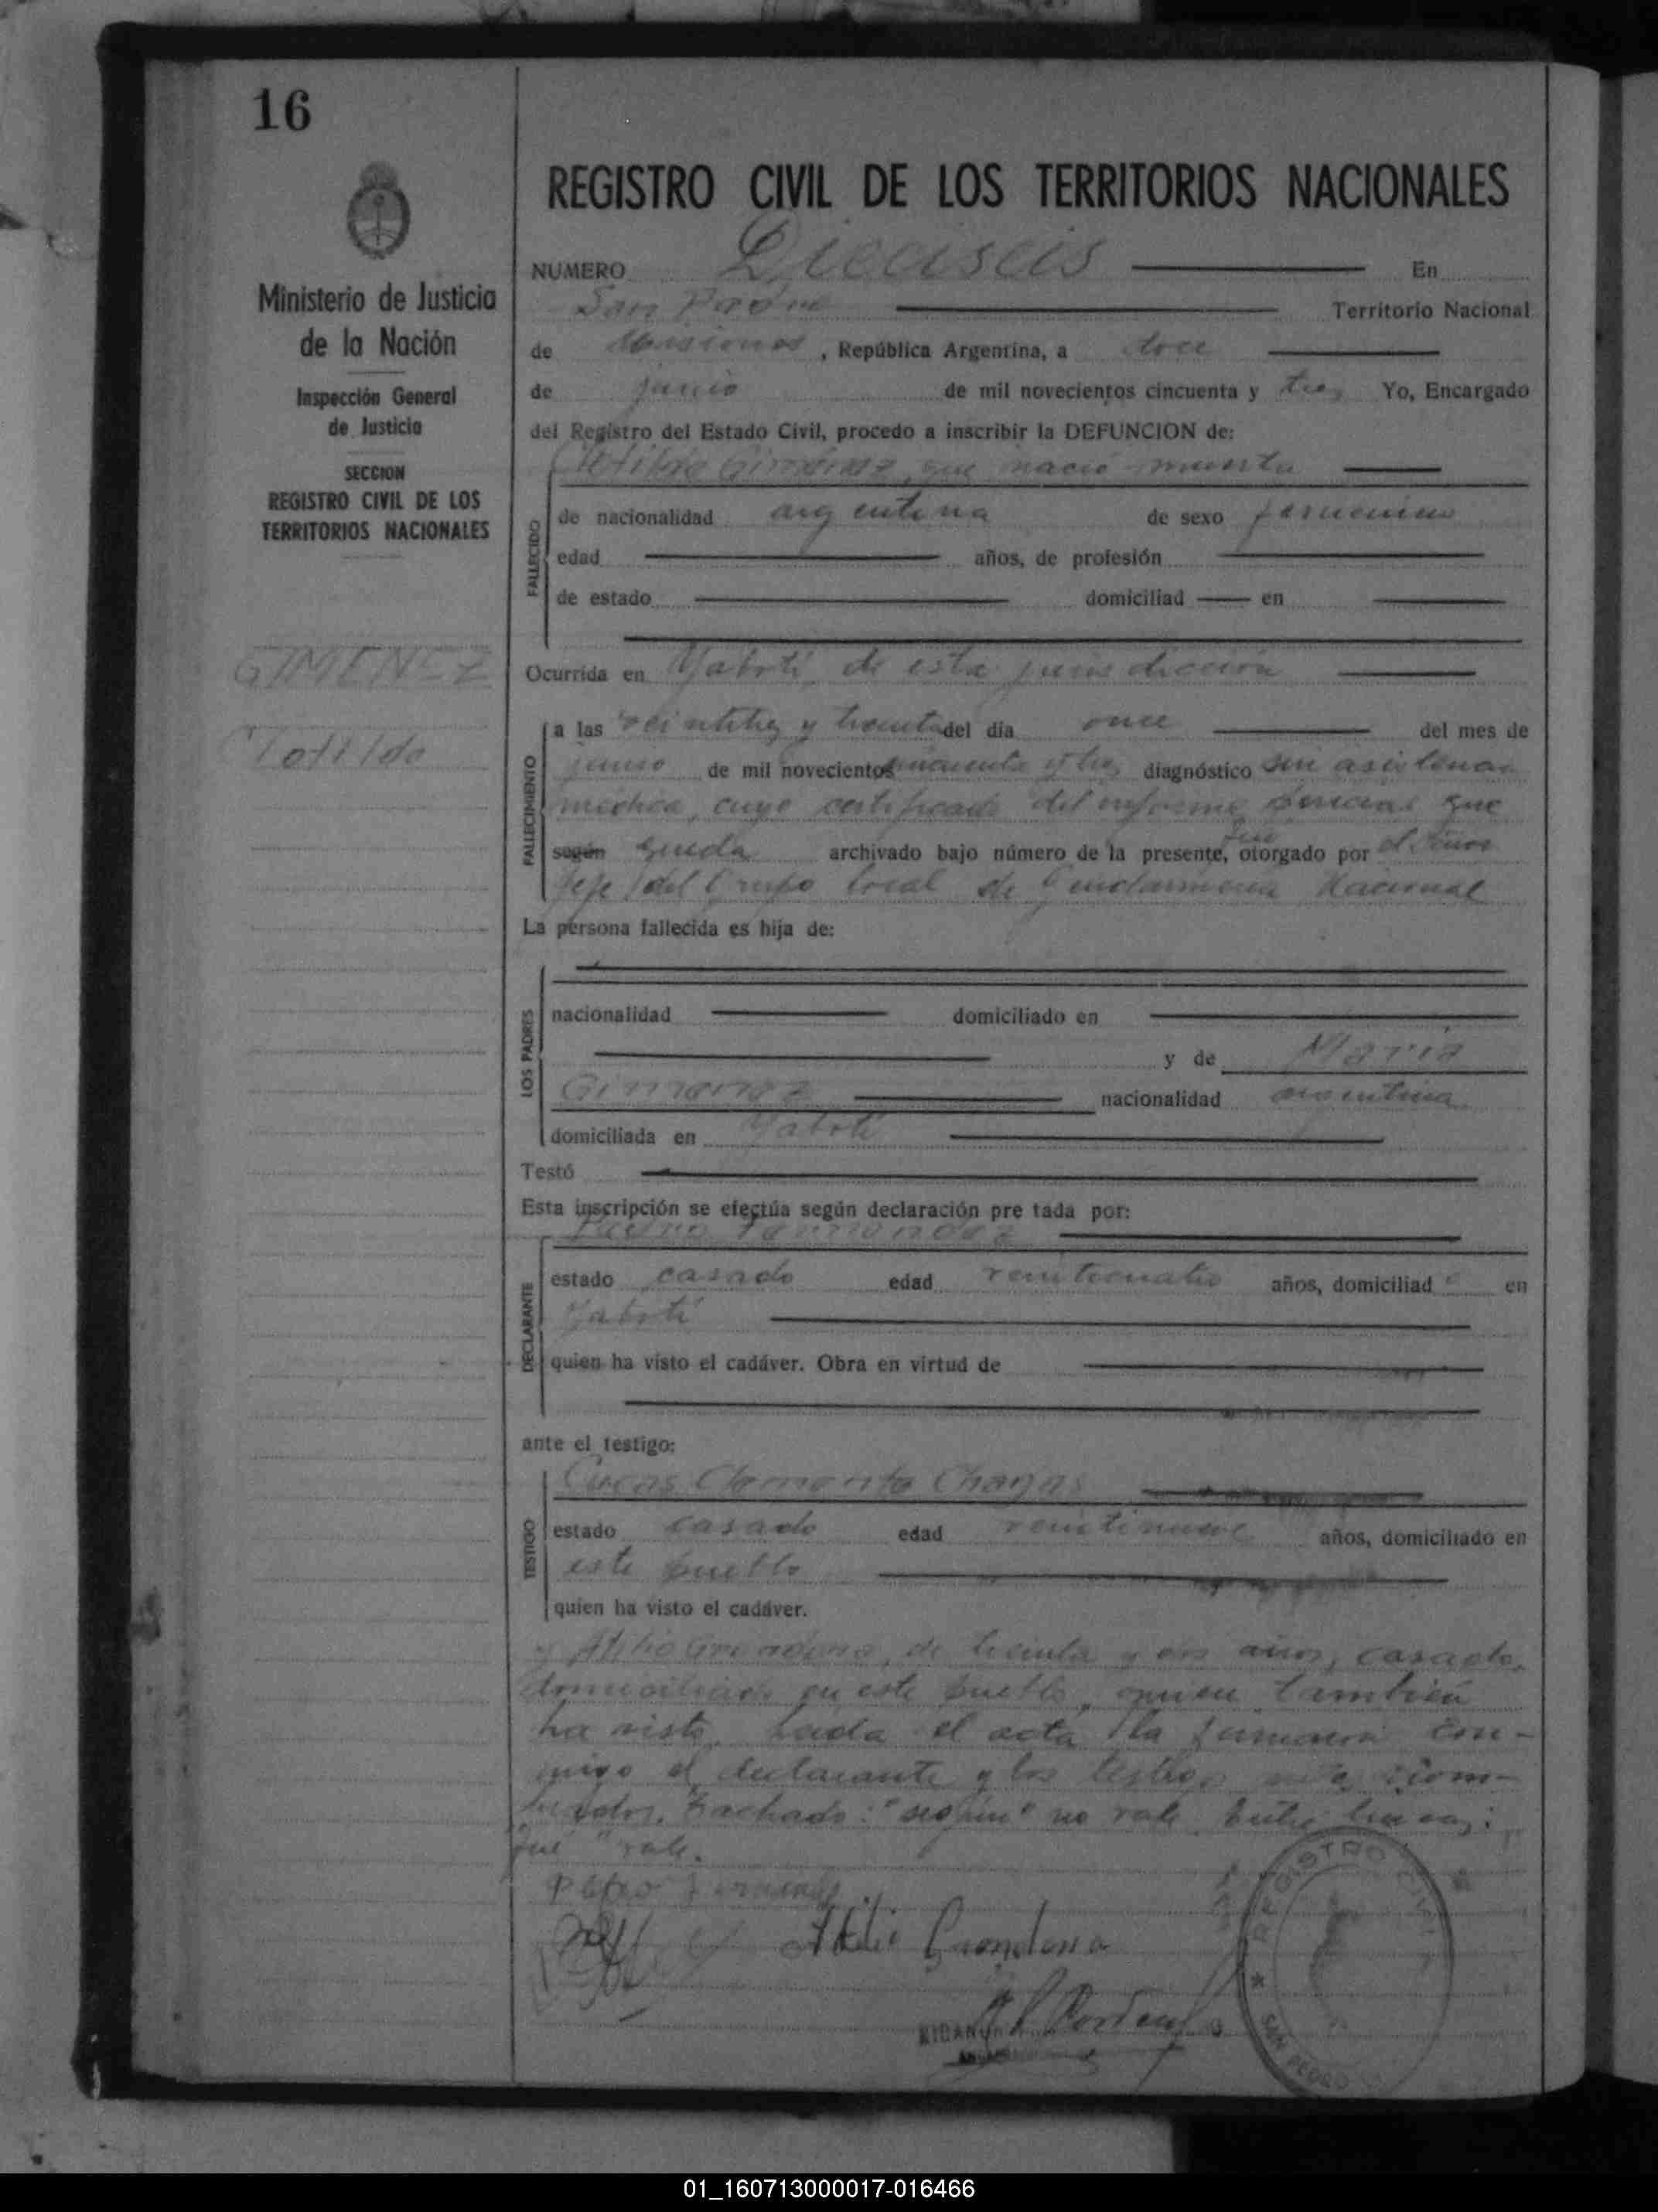 16
Ministerio de Justicia
de la Nación
Inspección General
de Justicia
SECCION
REGISTRO CIVIL DE LOS
TERRITORIOS NACIONALES
GIMENEZ
Clotilde
REGISTRO CIVIL DE LOS TERRITORIOS NACIONALES
NUMERO Dieciseis En
San Pedro Territorio Nacional
de Misiones, República Argentina, a doce
de junio de mil novecientos cincuenta y tres Yo, Encargado
del Registro del Estado Civil, procedo a inscribir la DEFUNCION de:
Clotilde Gimenez, que nació muerta
FALLECIDO
de nacionalidad argentina de sexo femenino
edad años, de profesión
de estado domiciliad en
Ocurrida en Yabotí de esta jurisdicción
FALLECIMIENTO
a las veintitres y treinta del dia once del mes de
junio de mil novecientos cincuenta y tres diagnóstico sin asistencia
médica, cuyo certificado del informe policial que
según queda archivado bajo número de la presente, fue otorgado por el señor
Jefe del Grupo local de Gendarmería Nacional
La persona fallecida es hija de:
LOS PADRES
nacionalidad domiciliado en
y de Maria
Gimenez nacionalidad argentina
domiciliada en Yabotí
Testó
Esta inscripción se efectúa según declaración pre tada por:
Pedro Fernandez
DECLARANTE
estado casado edad veinticuatro años, domiciliad o en
Yabotí
quien ha visto el cadáver. Obra en virtud de
ante el testigo:
Lucas Clemente Chagas
TESTIGO
estado casado edad veintinueve años, domiciliado en
este pueblo
quien ha visto el cadáver.
y Atilio Grondona, de treinta y dos años, casado,
domiciliado en este pueblo, quien también
ha visto. Leida el acta la firmaron con-
migo el declarante y los testigos nom-
brados. Tachado: "según" no vale. Entre lineas:
"fué" vale.
Pedro Fernandez
Atilio Grondona
REGISTRO CIVIL
* SAN PEDRO
01_160713000017-016466